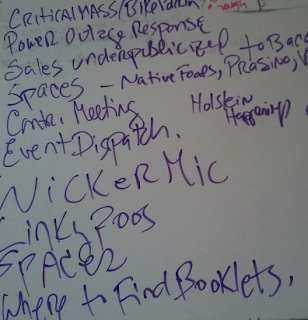 CRiticalMASS/Bike
Power Outage Response
Sales underpublicized to
Spaces - Native Foods, PRASino,
Cmtr. Meeting Holstein
Event Dispatch.
NickeR Mic
Linky Poos
SPACE2
Where to Find Booklets.